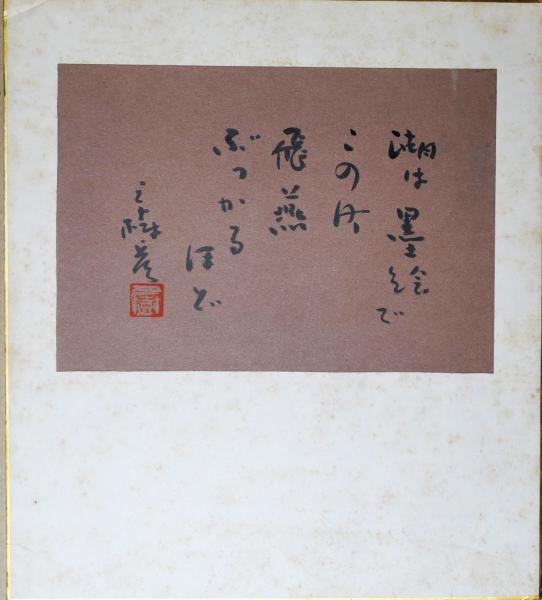 湖は墨絵で
この
飛燕
ぶつかる
ほど
三樹彦